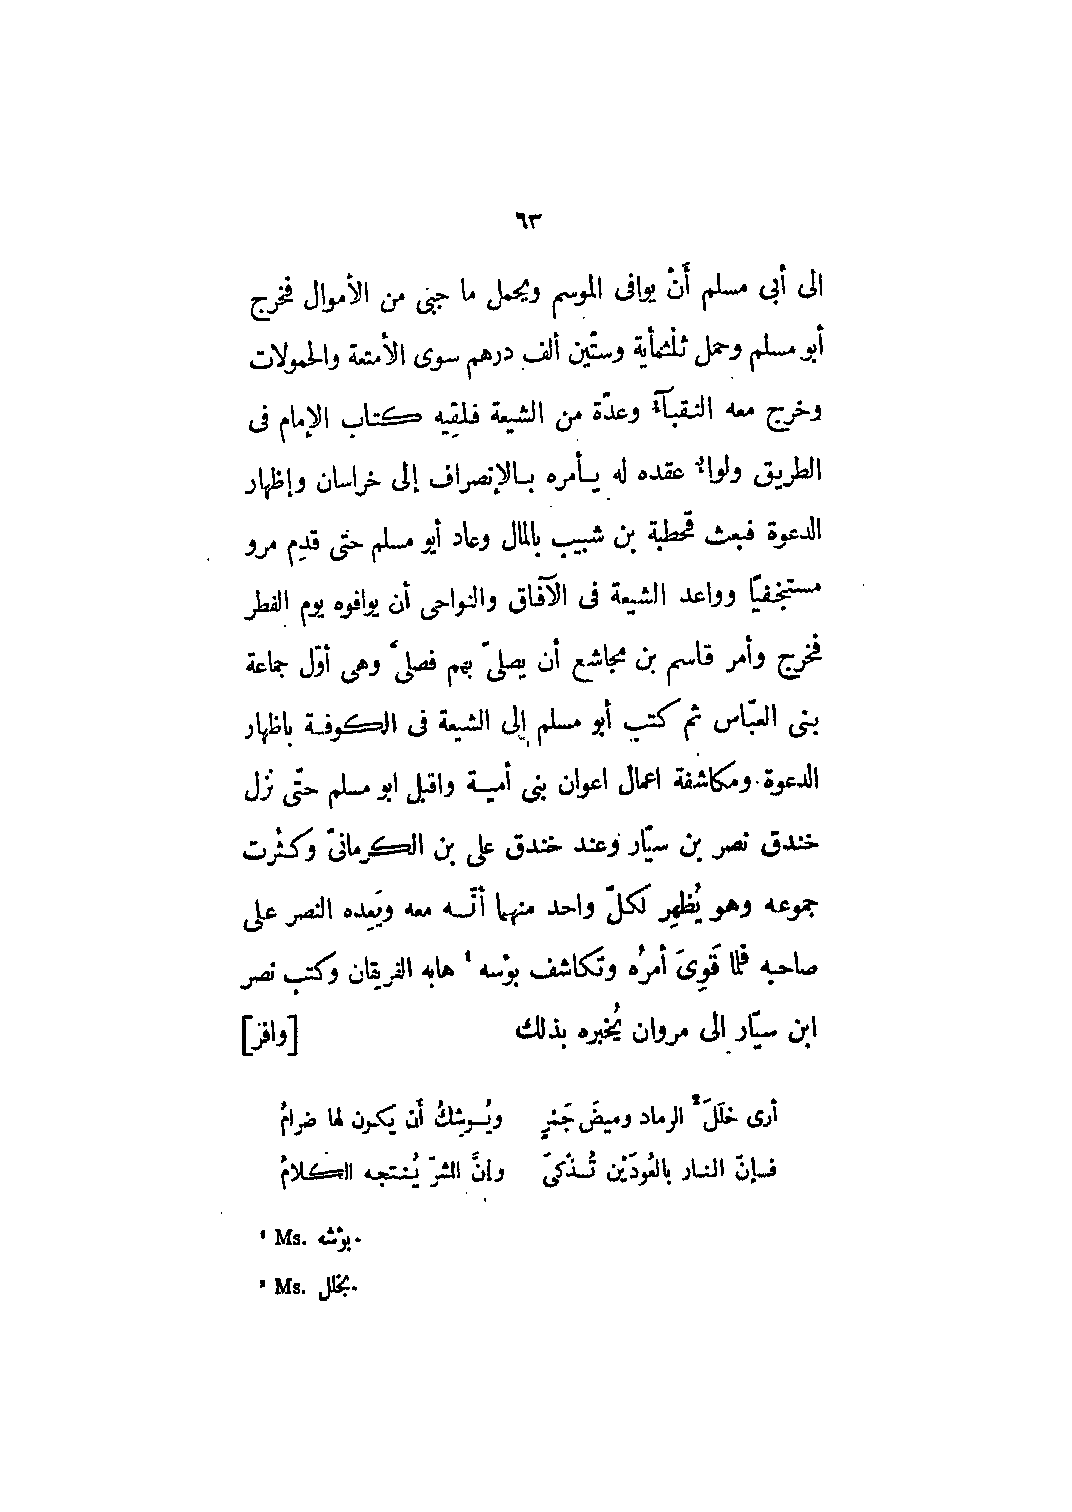 ٦٣
الى أبى مسلم أَنْ يوافى الموسم ويحمل ما جبى من الأموال فخرج
أبو مسلم وحمل ثلْثمأية وستّين ألف درهم سوى الأمتعة والحمولات
وخرج معه النقبآء وعدّة من الشيعة فلقِيه كتاب الإمام فى
الطريق ولواء عقده له يأمره بالإنصراف إلى خراسان وإظهار
الدعوة فبعث قحطبة بن شبيب بالمال وعاد أبو مسلم حتى قدِم مرو
مستخفيّا وواعد الشيعة فى الآفاق والنواحى أن يوافوه يوم الفطر
فخرج وأمر قاسم بن مجاشع أن يصلىّ بهم فصلىّ وهى أوّل جماعة
بنى العبّاس ثم كتب أبو مسلم إلى الشيعة فى الكوفة باظهار
الدعوة ومكاشفة اعمال اعوان بنى أمية واقبل ابو مسلم حتّى نزل
خندق نصر بن سيّار وعند خندق على بن الكرمانىّ وكثُرت
جموعه وهو يُظهِر لكلّ واحد منهما أنّه معه ويَعِده النصر على
صاحبه فلمّا قَوِىَ أمرُه وتكاشف بؤسه ¹ هابه الفريقان وكتب نصر
ابن سيّار الى مروان يُخبره بذلك [وافر]
أرى خَلَلَ ² الرماد وميضَ جَمْرٍ ويُوشِكُ أن يكون لها ضرامُ
فإنّ النار بالعُودَيْن تُذْكىَ وإنَّ الشرّ يُنتجه الكلامُ
¹ Ms. بؤشه.
² Ms. بخلل.